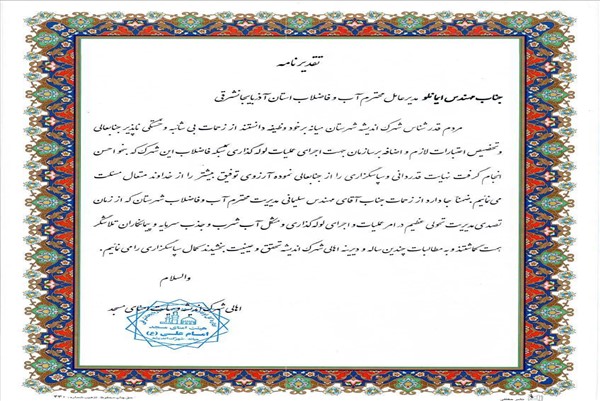 تقدیرنامه
جناب مهندس ایمانلو مدیرعامل محترم آب و فاضلاب استان آذربایجانشرقی
مردم قدرشناس شهرک اندیشه شهرستان میانه برخود وظیفه دانستند از زحمات بی شائبه و خستگی ناپذیر جنابعالی
و تخصیص اعتبارات لازم و اضافه بر سازمان جهت اجرای عملیات لوله گذاری شبکه فاضلاب این شهرک که بنحو احسن
انجام گرفت نهایت قدردانی و سپاسگزاری را از جنابعالی نموده آرزوی توفیق بیشتر را از خداوند متعال مسئلت
می نمائیم ضمناً جا دارد از زحمات جناب آقای مهندس سلیمانی مدیریت محترم آب و فاضلاب شهرستان که از زمان
تصدی مدیریت تحولی عظیم در امر عملیات و اجرای لوله گذاری و مشکل آب شرب و جذب سرمایه و پیمانکاران تلاشگر
همت گماشتند و به مطالبات چندین ساله و دیرینه اهالی شهرک اندیشه تحقق و عینیت بخشیدند کمال سپاسگزاری را می نمائیم.
والسلام
اهالی شهرک اندیشه و هیئت امنای مسجد
هیئت امنای مسجد
امام علی (ع)